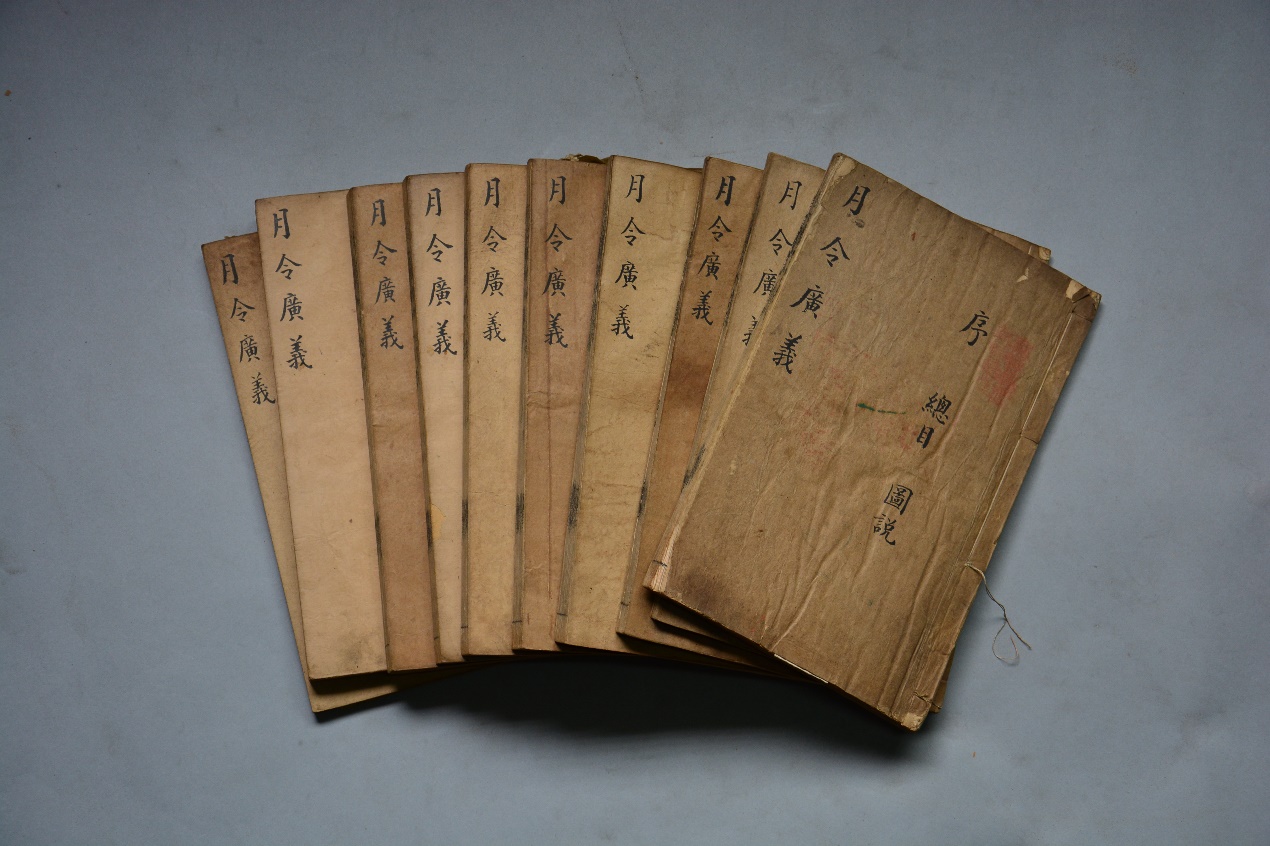 序
總目
圖說
月令廣義
月令廣義
月令廣義
月令廣義
月令廣義
月令廣義
月令廣義
月令廣義
月令廣義
月令廣義